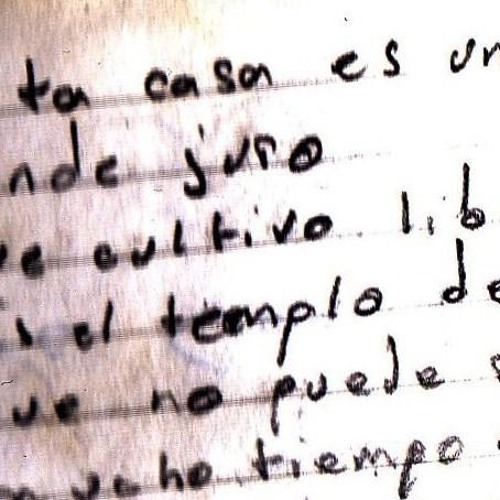 ta casa es un
nde juro
ue cultivo lib
s el templo de
ue no puede s
mucho tiempo